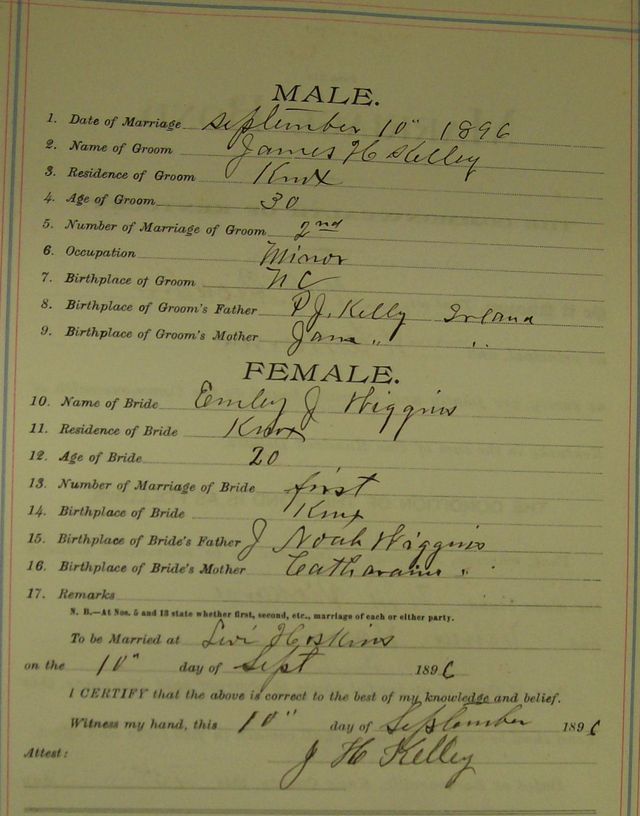 MALE.
1. Date of Marriage September 10" 1896
2. Name of Groom James H Kelley
3. Residence of Groom Knox
4. Age of Groom 30
5. Number of Marriage of Groom 2nd
6. Occupation Minor
7. Birthplace of Groom NC
8. Birthplace of Groom's Father P J. Kelly Irland
9. Birthplace of Groom's Mother Jane " "
FEMALE.
10. Name of Bride Emley J Wiggins
11. Residence of Bride Knox
12. Age of Bride 20
13. Number of Marriage of Bride first
14. Birthplace of Bride Knx
15. Birthplace of Bride's Father J Noah Wiggins
16. Birthplace of Bride's Mother "
17. Remarks
N. B.—At Nos. 5 and 13 state whether first, second, etc., marriage of each or either party.
To be Married at Levi Hoskins
on the 10" day of Sept 1896
I CERTIFY that the above is correct to the best of my knowledge and belief.
Witness my hand, this 10" day of September 1896
J H Kelley
Attest: